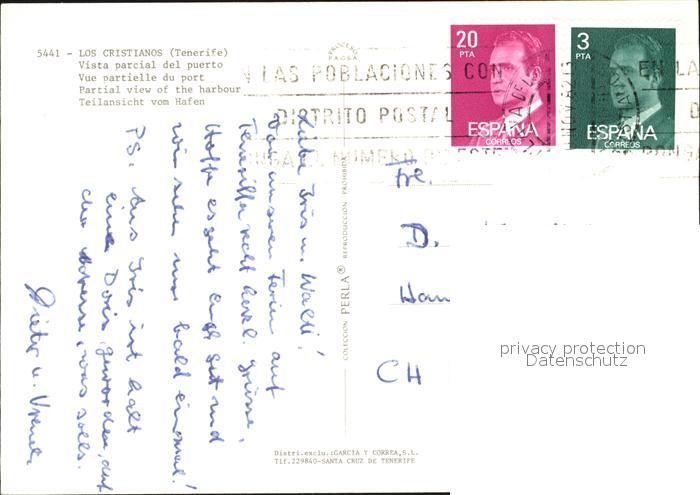 5441 - LOS CRISTIANOS (Tenerife)
Vista parcial del puerto
Vue partielle du port
Partial view of the harbour
Teilansicht vom Hafen
PROCESO
PAOSA
20
PTA
ESPAÑA
CORREOS
3
PTA
ESPAÑA
CORREOS
EN LAS POBLACIONES CON
DISTRITO POSTAL
PONGA EL NUMERO DE ESTE
EN LA
D
PONGA
Liebe Iris u. Walti!
von unseren Ferien auf
Teneriffa recht herzl. Grüsse.
Hoffe es geht Euch gut und
wir sehen uns bald einmal!
PS. Aus Iris ist halt
eine Doris geworden, auf
der Adresse, was solls.
Dieter u. Vreneli
COLECCION PERLA ® REPRODUCCION PROHIBIDA
D.
CH
privacy protection
Datenschutz
Distri.exclu.:GARCIA Y CORREA,S.L.
Tlf.229840-SANTA CRUZ DE TENERIFE